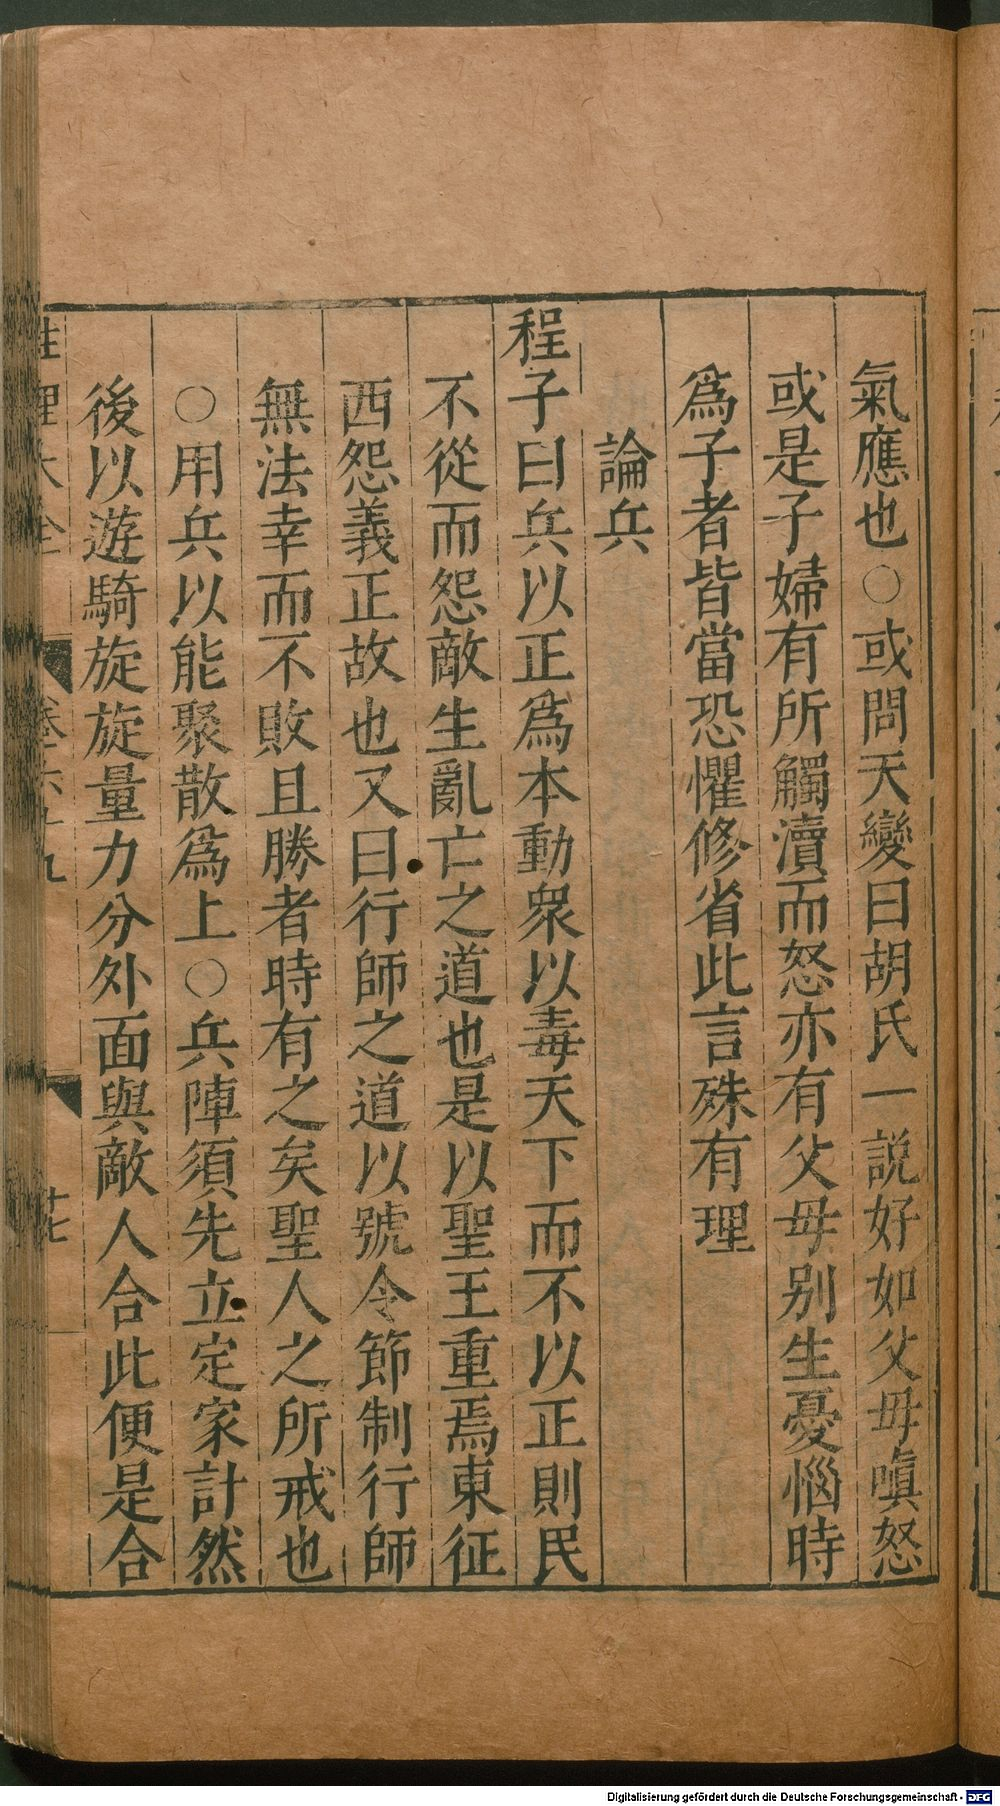 氣應也○或問天變曰胡氏一説好如父母嗔怒
或是子婦有所觸瀆而怒亦有父母别生憂惱時
爲子者皆當恐懼修省此言殊有理
論兵
程子曰兵以正爲本動衆以毒天下而不以正則民
不從而怨敵生亂亡之道也是以聖王重焉東征
西怨義正故也又曰行師之道以號令節制行師
無法幸而不敗且勝者時有之矣聖人之所戒也
○用兵以能聚散爲上○兵陣須先立定家計然
後以遊騎旋旋量力分外面與敵人合此便是合
性理大全
卷六十九
十七
Digitalisierung gefördert durch die Deutsche Forschungsgemeinschaft - DFG